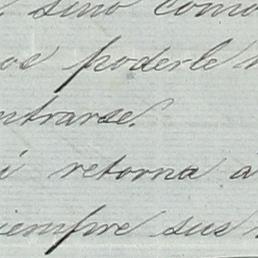 sino como
poderle
ntrarse.
i retorna a
iempre sus